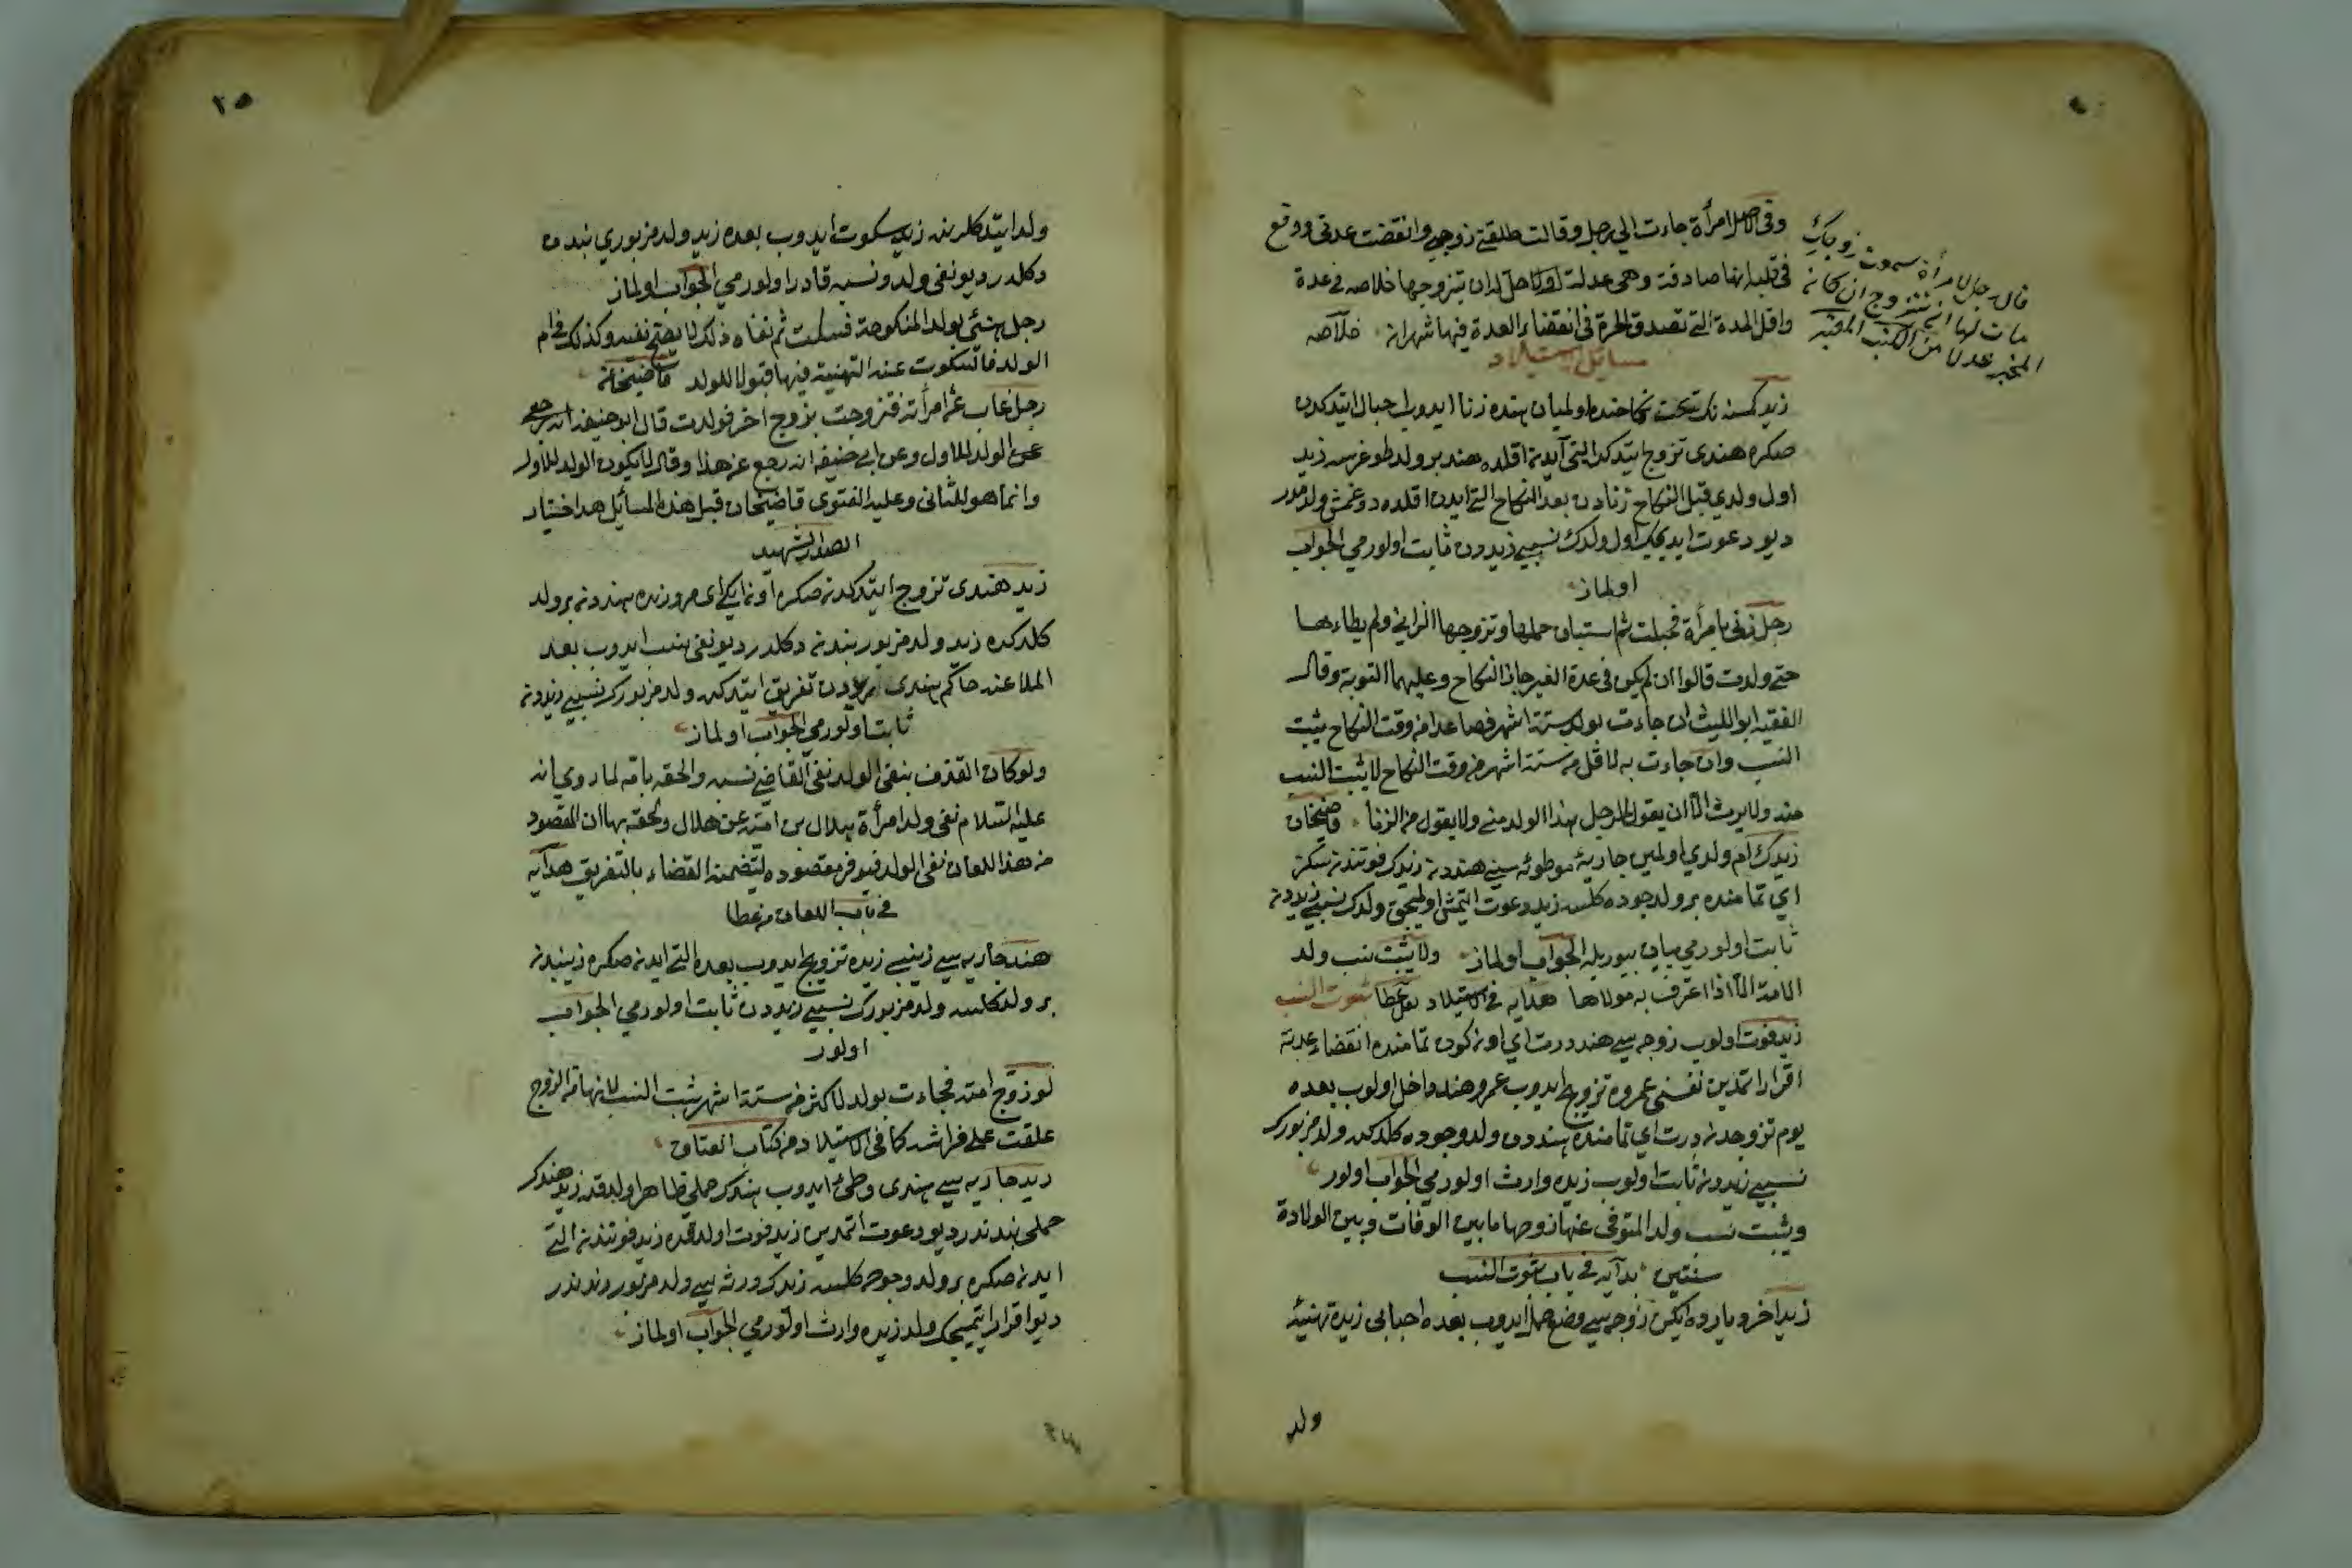 وفى الاصل امرأة جاءت الى رجل وقالت طلقنى زوجى وانقضت عدتى ووقع
فى قلبه انها صادقة وهى عدلة اولا حل له ان يتزوجها خلاصه فى عدة
واقل المدة التى تصدق الحرة فى انقضاء العدة فيها شهران خلاصه
مسائل استيلاد
قال رجل لامرأة سمعت زوجك
مات لها ان تتزوج ان كان
المخبر عدلا من الكتب المعتبر
زيد كمسنه نك تحت نكاحنده اولميان هنده زنا ايدوب احبال ايتدكدن
صكره هندى تزوج ايتدكده التى آيدن اقلده هند بر ولد طوغرسه زيد
اول ولدى قبل النكاح زنادن بعد النكاح التى ايدن اقلده دوغمش ولدمدر
ديو دعوت ايديجك اول ولدك نسبى زيددن ثابت اولورمى الجواب
اولماز
رجل زنى بامرأة فحبلت ثم استبان حملها وتزوجها الزانى ولم يطاءها
حتى ولدت قالوا ان لم يكن فى عدة الغير جاز النكاح وعليهما التوبة وقال
الفقيه ابو الليث ان جاءت بولد ستة اشهر فصاعدا من وقت النكاح يثبت
النسب وان جاءت به لاقل من ستة اشهر من وقت النكاح لا يثبت النسب
منه ولا يرث الا ان يقول الرجل هذا الولد منى ولا يقول من الزنا قاضيخان
زيدك ام ولدى اولمين جاريه موطوئه سى هنددن زيدك فوتندن سكز
اى تمامنده بر ولد وجوده كلسه زيد دعوت ايتمش اولميجق ولدك نسبى زيددن
ثابت اولورمى بيان بيوريله الجواب اولماز ولا يثبت نسب ولد
الامة الا اذا اعترف به مولاها هدايه فى الاستيلاد ثبوت النسب
زيد فوت اولوب زوجه سى هند درت اى اون كون تمامنده انقضاء عدته
اقرار ايتمدين نفسنى عمروه تزويج ايدوب عمرو هنده داخل اولوب بعده
يوم تزوجدن درت اى تمامنده هنددن ولد وجوده كلدكده ولد مزبورك
نسبى زيددن ثابت اولوب زيده وارث اولورمى الجواب اولور
ويثبت نسب ولد المتوفى عنها زوجها ما بين الوفات وبين الولادة
سنتين هدايه فى باب ثبوت النسب
زيد اخر دياروه ايكن زوجه سى وضع حمل ايدوب بعده احبابى زيده تهنيئه
ولد
٢٥
ولد ايتدكلرنده زيد سكوت ايدوب بعده زيد ولد مزبورى بندن
دكلدر ديو نفى ولد ونسبه قادر اولورمى الجواب اولماز
رجل هنئ بولد المنكوحة فسكت ثم نفاه ذلك لا يصح نفيه وكذلك فى ام
الولد فالسكوت عند التهنية فيها قبولا للولد قاضيخان
رجل غاب عن امرأته فتزوجت بزوج اخر فولدت قال ابو حنيفه
الولد للاول وعن ابى حنيفه انه رجع عن هذا وقال لا يكون الولد للاول
وانما هو للثانى وعليه الفتوى قاضيخان قبل هذه المسائل هذا اختيار
الصدر الشهيد
زيد هندى تزوج ايتدكدن صكره اون ايكى اى مرورنده هنددن بر ولد
كلدكده زيد ولد مزبور بندن دكلدر ديو نفى نسب ايدوب بعد
الملاعنه حاكم هندى زيددن تفريق ايتدكده ولد مزبورك نسبى زيددن
ثابت اولورمى الجواب اولماز
ولو كان القذف بنفى الولد نفى القاضى نسبه والحقه بامه لما روى انه
عليه السلام نفى ولد امرأة هلال بن اميه عن هلال والحقه بها ان المقصود
من هذا اللعان نفى الولد فيوفر مقصوده ليتضمنه القضاء بالتفريق هدايه
فى باب اللعان
هند جاريه سى زينبى زيده تزويج ايدوب بعده التى ايدن صكره زينبدن
بر ولد كلسه ولد مزبورك نسبى زيددن ثابت اولورمى الجواب
اولور
لو زوج امته فجاءت بولد لاكثر من ستة اشهر ثبت النسب لانها من الزوج
علقت على فراشه كما فى الاستيلاد من كتاب العتاق
زيد جاريه سى هندى وطئ ايدوب هندك حملى ظاهر اولدقده زيد هندك
حملى بندندر ديو دعوت ايتمدين زيد فوت اولدقده زيد فوتندن التى
ايدن صكره بر ولد وجوده كلسه زيدك ورثه سى ولد مزبور زيدندر
ديو اقرار ايتميجك ولد زيده وارث اولورمى الجواب اولماز